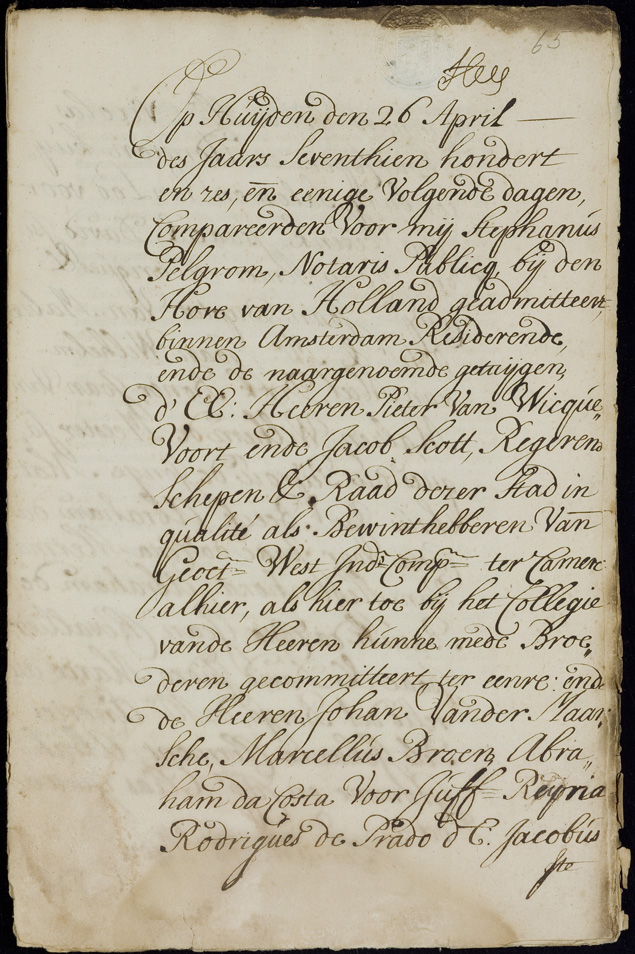 65
Op Huijden den 26 April
des Jaars Seventhien hondert
en zes, en̄ eenige Volgende dagen,
Compareerden Voor mij Stephanus
Pelgrom, Notaris Publicq, bij den
Hove van Holland geadmitteert,
binnen Amsterdam Residerende,
ende de naargenoemde getuijgen,
d' EE: Heeren Pieter Van Wicque„
Voort ende Jacob Scott, Regerend
Schepen & Raad dezer Stad in
qualité als Bewinthebberen Van
Geoct West Ind Comp ter Camere
alhier, als hier toe bij het Collegie
vande Heeren hunne mede Broe„
deren gecommitteert ter eenre: ende
de Heeren Johan Vander Maar„
Sche, Marcellus Broen, Abra„
ham da Costa Voor Juff Reyna
Rodrigues de Prado d' E. Jacobus